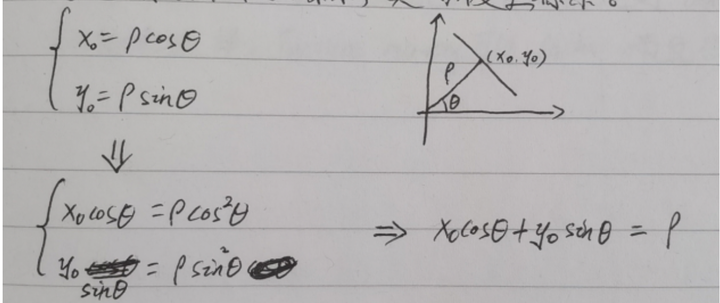 x₀ = ρcosθ
y₀ = ρsinθ
ρ
θ
(x₀, y₀)
⇓
x₀cosθ = ρcos²θ
y₀ sinθ = ρsin²θ
⇒ x₀cosθ + y₀sinθ = ρ